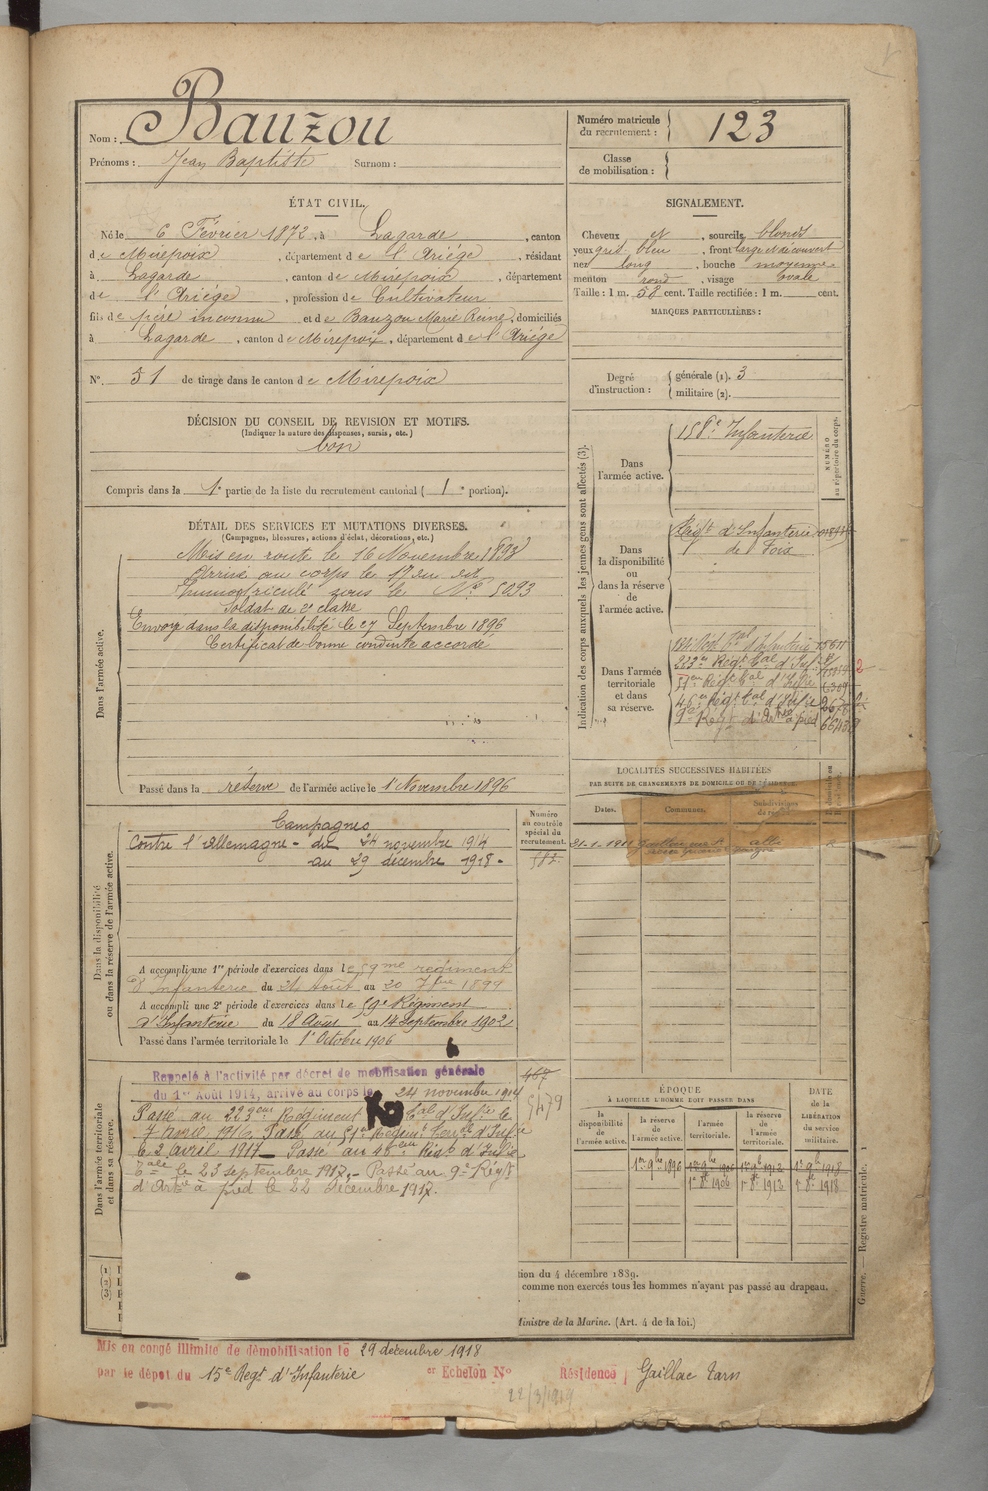 Nom : Bauzou
Prénoms : Jean Baptiste Surnom :
Numéro matricule du recrutement : 123
Classe de mobilisation :
ÉTAT CIVIL.
Né le 6 Février 1872, à Lagarde, canton
de Mirepoix, département de l'Ariége, résidant
à Lagarde, canton de Mirepoix, département
de l'Ariége, profession de Cultivateur
fils de père inconnu et de Bauzou Marie Reine, domiciliés
à Lagarde, canton de Mirepoix, département de l'Ariége
N° 51 de tirage dans le canton de Mirepoix
SIGNALEMENT.
Cheveux et, sourcils blonds
yeux gris bleu, front large et découvert
nez long, bouche moyenne
menton rond, visage ovale
Taille : 1 m. 58 cent. Taille rectifiée : 1 m. cent.
MARQUES PARTICULIÈRES :
Degré d'instruction : générale (1). 3
militaire (2).
DÉCISION DU CONSEIL DE REVISION ET MOTIFS.
(Indiquer la nature des dispenses, sursis, etc.)
bon
Compris dans la 1e partie de la liste du recrutement cantonal ( 1e portion).
DÉTAIL DES SERVICES ET MUTATIONS DIVERSES.
(Campagnes, blessures, actions d'éclat, décorations, etc.)
Dans l'armée active.
Mis en route le 16 Novembre 1893
Arrivé au corps le 17 du dit
Immatriculé sous le No 5093
Soldat de 2e classe
Envoyé dans la disponibilité le 27 Septembre 1896
Certificat de bonne conduite accordé
Passé dans la réserve de l'armée active le 1er Novembre 1896
Indication des corps auxquels les jeunes gens sont affectés (3).
NUMÉRO au répertoire du corps.
Dans l'armée active.
158e Infanterie
Dans la disponibilité ou dans la réserve de l'armée active.
Régt d'Infanterie
de Foix
Dans l'armée territoriale et dans sa réserve.
223me Régt Tal d'Infie
51me Régt Tal d'Infie
46me Régt Tal d'Infie
9e Régt d'Artie à pied
LOCALITÉS SUCCESSIVES HABITÉES
PAR SUITE DE CHANGEMENTS DE DOMICILE OU DE RÉSIDENCE.
Dates. Communes. Subdivisions de région.
Dans la disponibilité ou dans la réserve de l'armée active.
Numéro au contrôle spécial du recrutement.
582
Campagnes
Contre l'Allemagne - du 24 novembre 1914
au 29 décembre 1918 -
A accompli une 1re période d'exercices dans le 59me régiment
d'Infanterie du 24 août au 20 7bre 1899
A accompli une 2e période d'exercices dans le 59e Régiment
d'Infanterie du 18 Août au 14 Septembre 1902
Passé dans l'armée territoriale le 1er Octobre 1906
Dans l'armée territoriale et dans sa réserve.
467
5479
Rappelé à l'activité par décret de mobilisation générale
du 1er Août 1914, arrivé au corps le 24 novembre 1914
Passé au 223eme Régiment Tal d'Infie le
7 Avril 1916. Passé au 51e Régiment Terale d'Infie
le 2 Avril 1917 - Passé au 46eme Régt d'Infie
Tale le 23 septembre 1917. - Passé au 9e Régt
d'Artie à pied le 22 Décembre 1917.
ÉPOQUE
À LAQUELLE L'HOMME DOIT PASSER DANS
DATE de la LIBÉRATION du service militaire.
la disponibilité de l'armée active. la réserve de l'armée active. l'armée territoriale. la réserve de l'armée territoriale.
1er 9bre 1896 1er 9bre 1906 1er 9bre 1912 1er 9bre 1918
1er 8bre 1906 1er 8bre 1912 1er 8bre 1918
(1)
(2)
(3)
tion du 4 décembre 1889.
comme non exercés tous les hommes n'ayant pas passé au drapeau.
Ministre de la Marine. (Art. 4 de la loi.)
Guerre. — Registre matricule. 1
Mis en congé illimité de démobilisation le 29 décembre 1918
par le dépôt du 15e Régt d'Infanterie er Echelon No Résidence Gaillac Tarn
22/3/1919